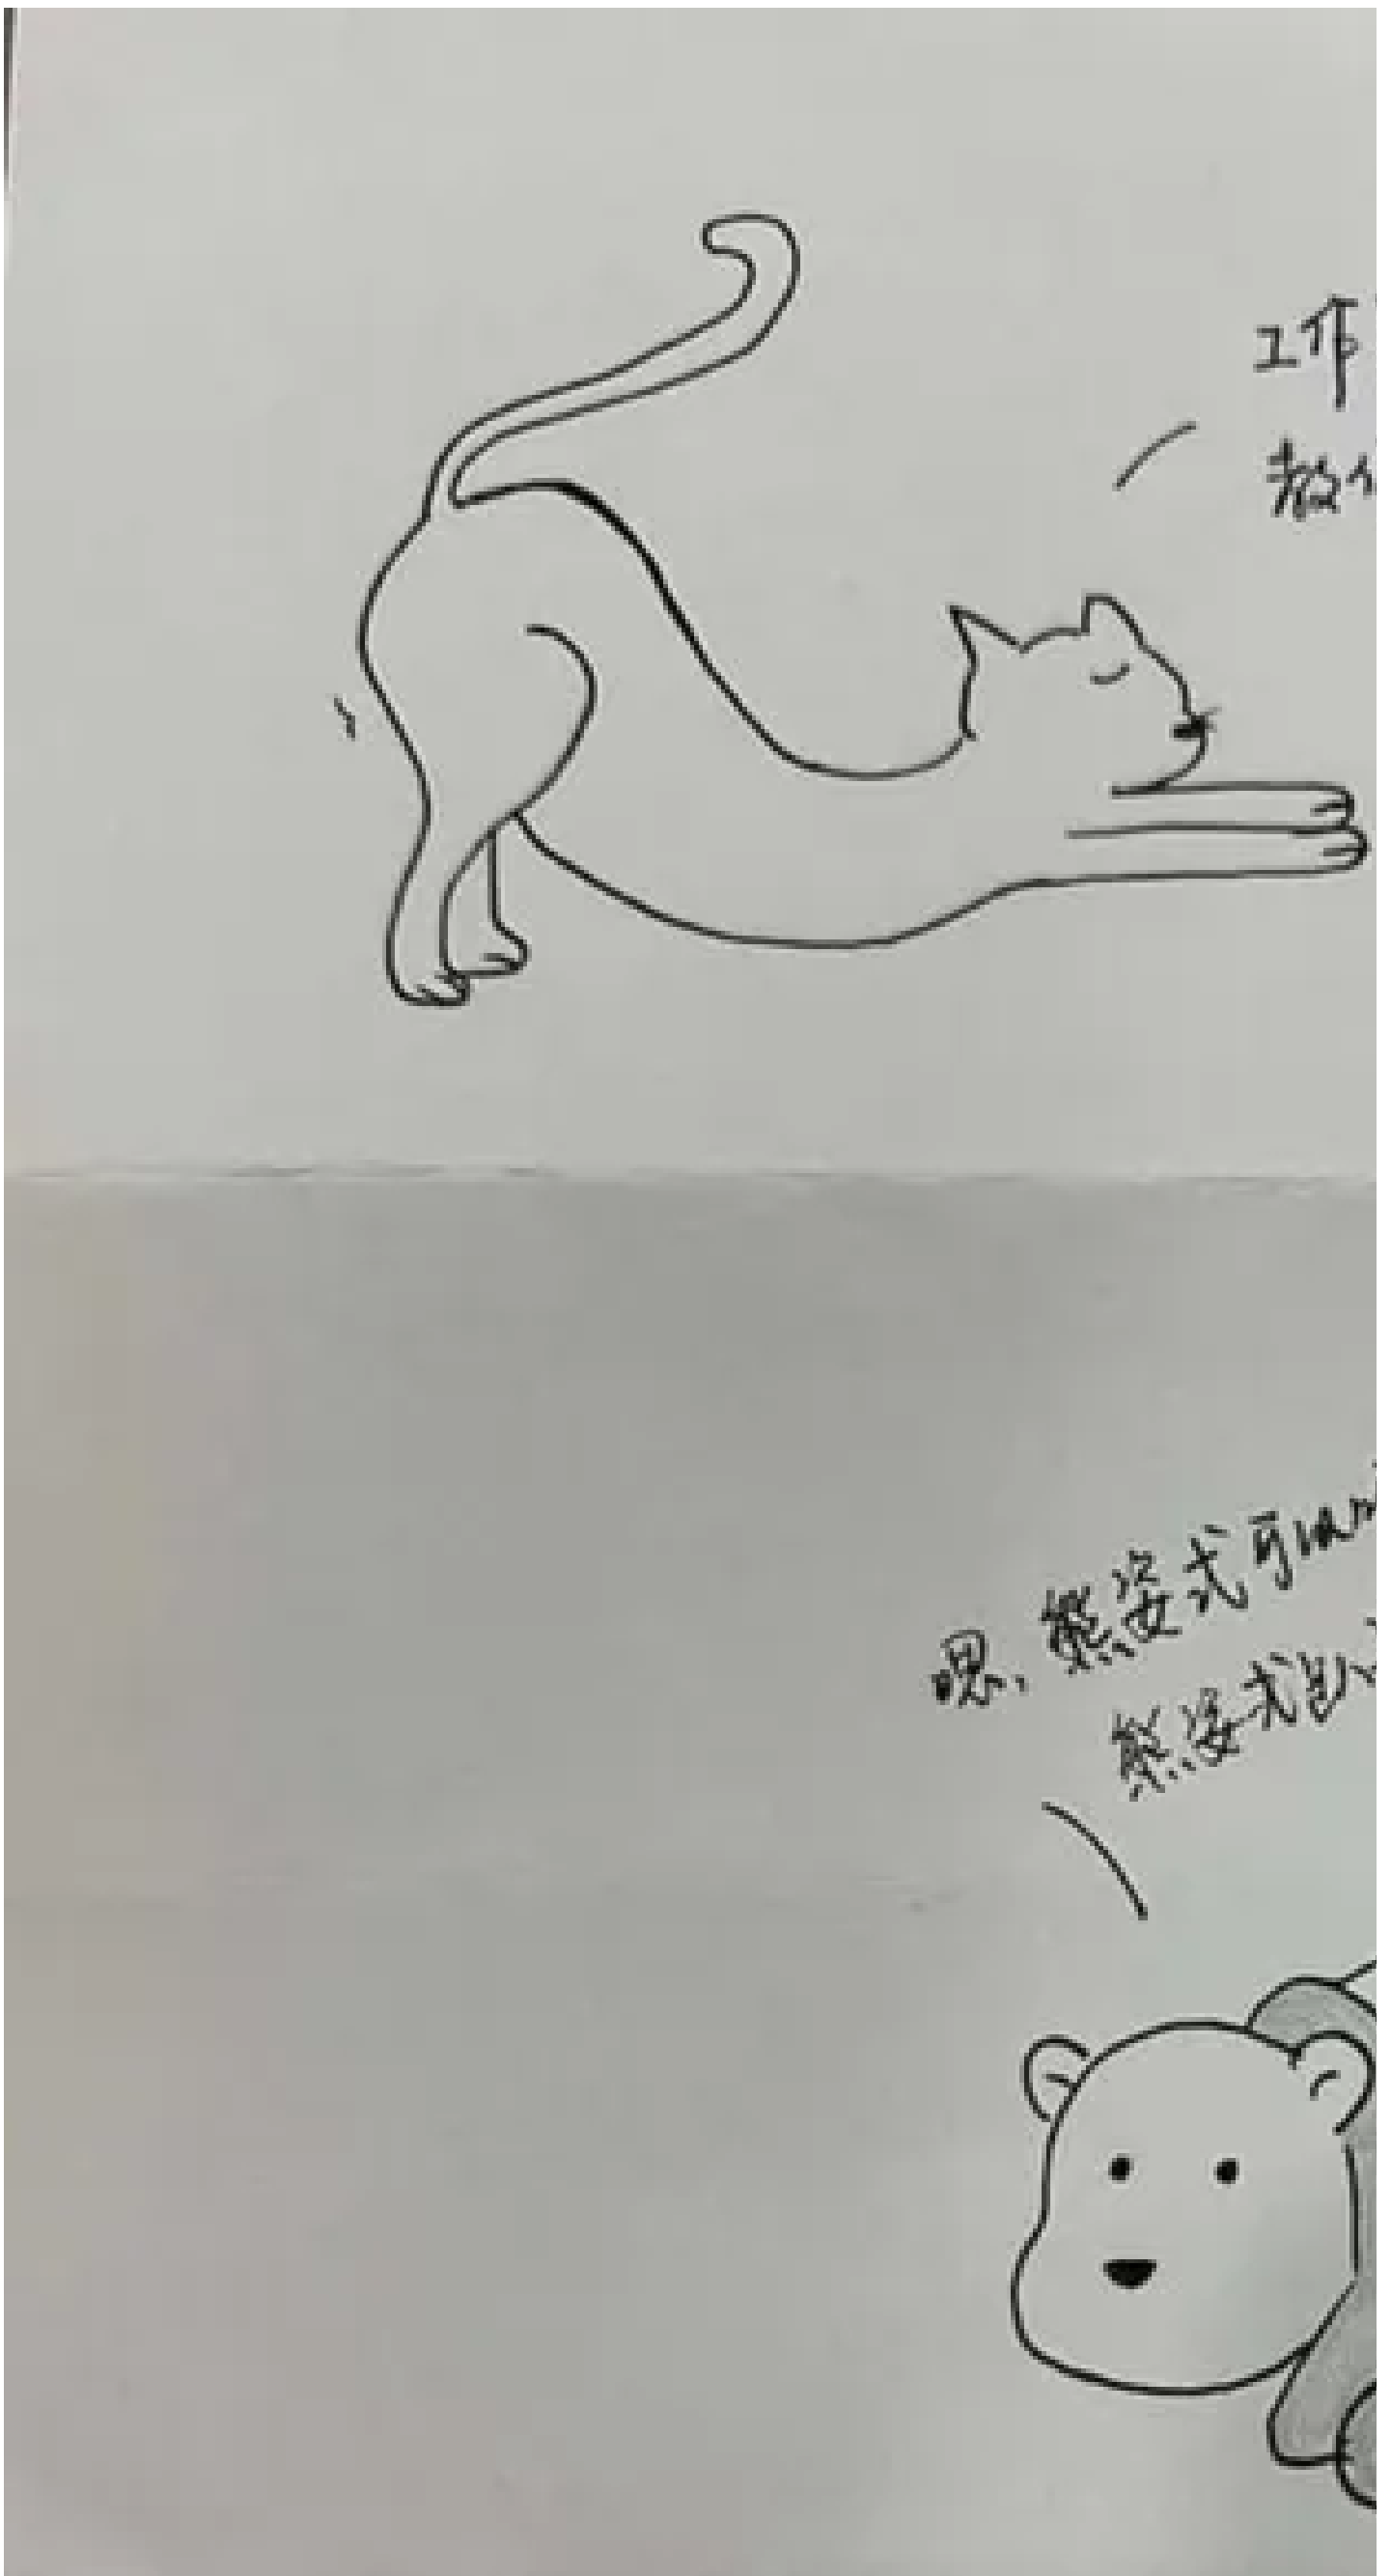 工作
教
嗯,熊姿式可
熊姿式